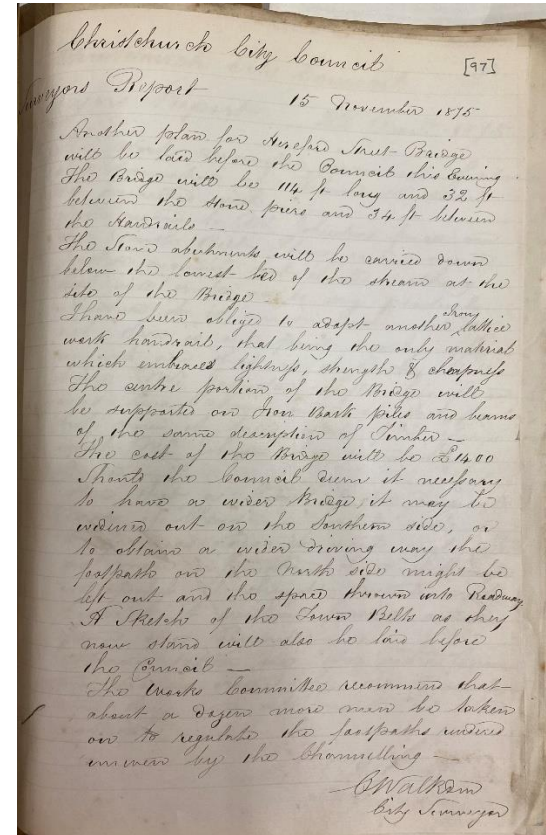 Christchurch City Council
[97]
Surveyors Report
15 November 1875
Another plan for Hereford Street Bridge
will be laid before the Council this Evening
The Bridge will be 114 ft long and 32 ft
between the stone piers and 34 ft between
the Handrails —
The Stone abutments will be carried down
below the lowest bed of the stream at the
site of the Bridge
I have been obliged to adopt another Iron lattice
work handrail, that being the only material
which embraces lightness, strength & cheapness
The centre portion of the Bridge will
be supported on Iron Bark piles and beams
of the same description of Timber —
The cost of the Bridge will be £1400
Should the Council deem it necessary
to have a wider Bridge, it may be
widened out on the Southern side, or
to obtain a wider driving way the
footpath on the North side might be
left out and the space thrown into Roadway
A Sketch of the Town Belts as they
now stand will also be laid before
the Council —
The Works Committee recommend that
about a dozen more men be taken
on to regulate the footpaths rendered
uneven by the Channelling —
C Walkden
City Surveyor